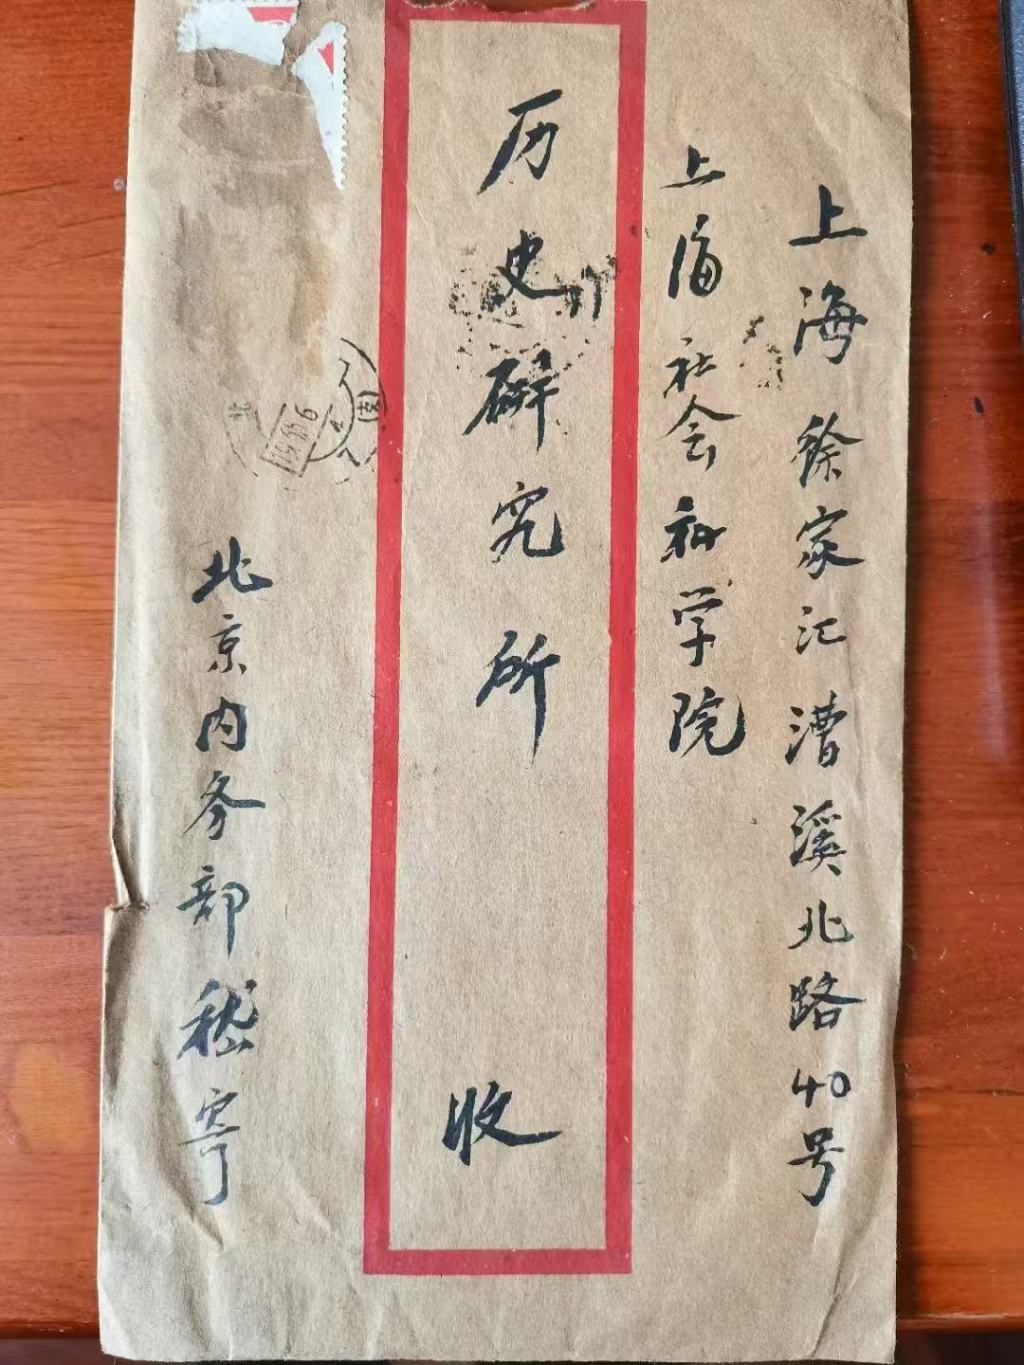 上海徐家汇漕溪北路40号
上海社会科学院
历史研究所
收
北京内务部嵇寄
北